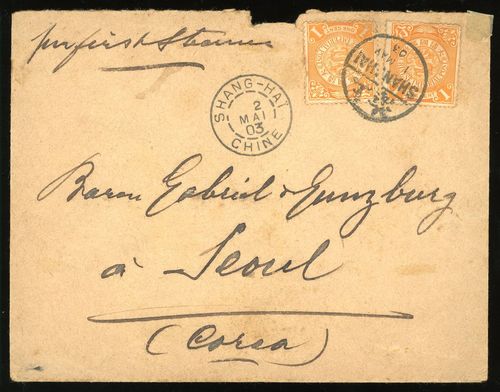 per first Steamer
SHANG-HAI
2
MAI
03
CHINE
SHANGHAI
1
1
Baron Gabriel de Gunzburg
à Seoul
(Corea)